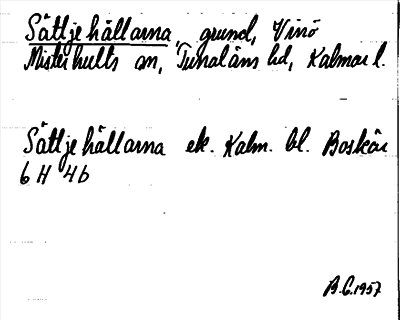 Sättjehällarna, grund, Vinö
Misterhults sn, Tunaläns hd, Kalmar l.
Sättjehällarna ek. Kalm. bl. Boskär
6 H 4b
B.G. 1957